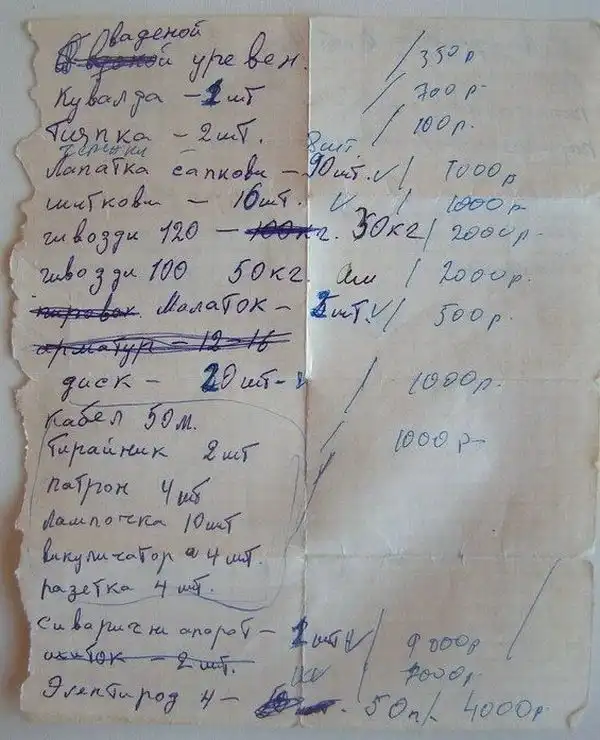 Ваденой
уревен. / 350р
Кувалда - 1шт / 700р
Тияпка - 2шт. / 100р.
черенки 8шт
лапатка сапкови - 90шт. V / 1000р
штткови - 16шт. V / 1000р
гивозди 120 - 100кг. 50кг / 2000р.
гивозди 100 50кг. / 2000р.
Малаток - 5шт. V / 500р.
арматур - 12-16
диск - 20шт- / 1000р.
кабел 50м.
тирайник 2шт / 1000р
патрон 4шт
лампочка 10шт
викуличатор а 4шт.
разетка 4шт.
сиваричти апорот - 1шт V / 9000р
- 2шт. / 7000р
Электирод н - шт. 50п / 4000р.